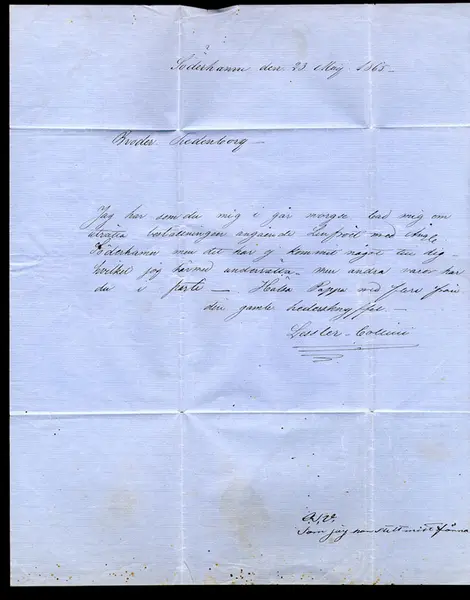 Söderhamn den 23 Maj 1865 –
Broder Sedenborg –
Jag har som du mig i går morgse bad mig om
angående Linfröet med
Söderhamn men det har ej kommit något till dig
hvilket jag härmed underrätta – men andra varor har
du i parti – Helsa Pappa med flere från
den gamle hedersknyffel –
Lessler – Collini
N.V.
Som jag